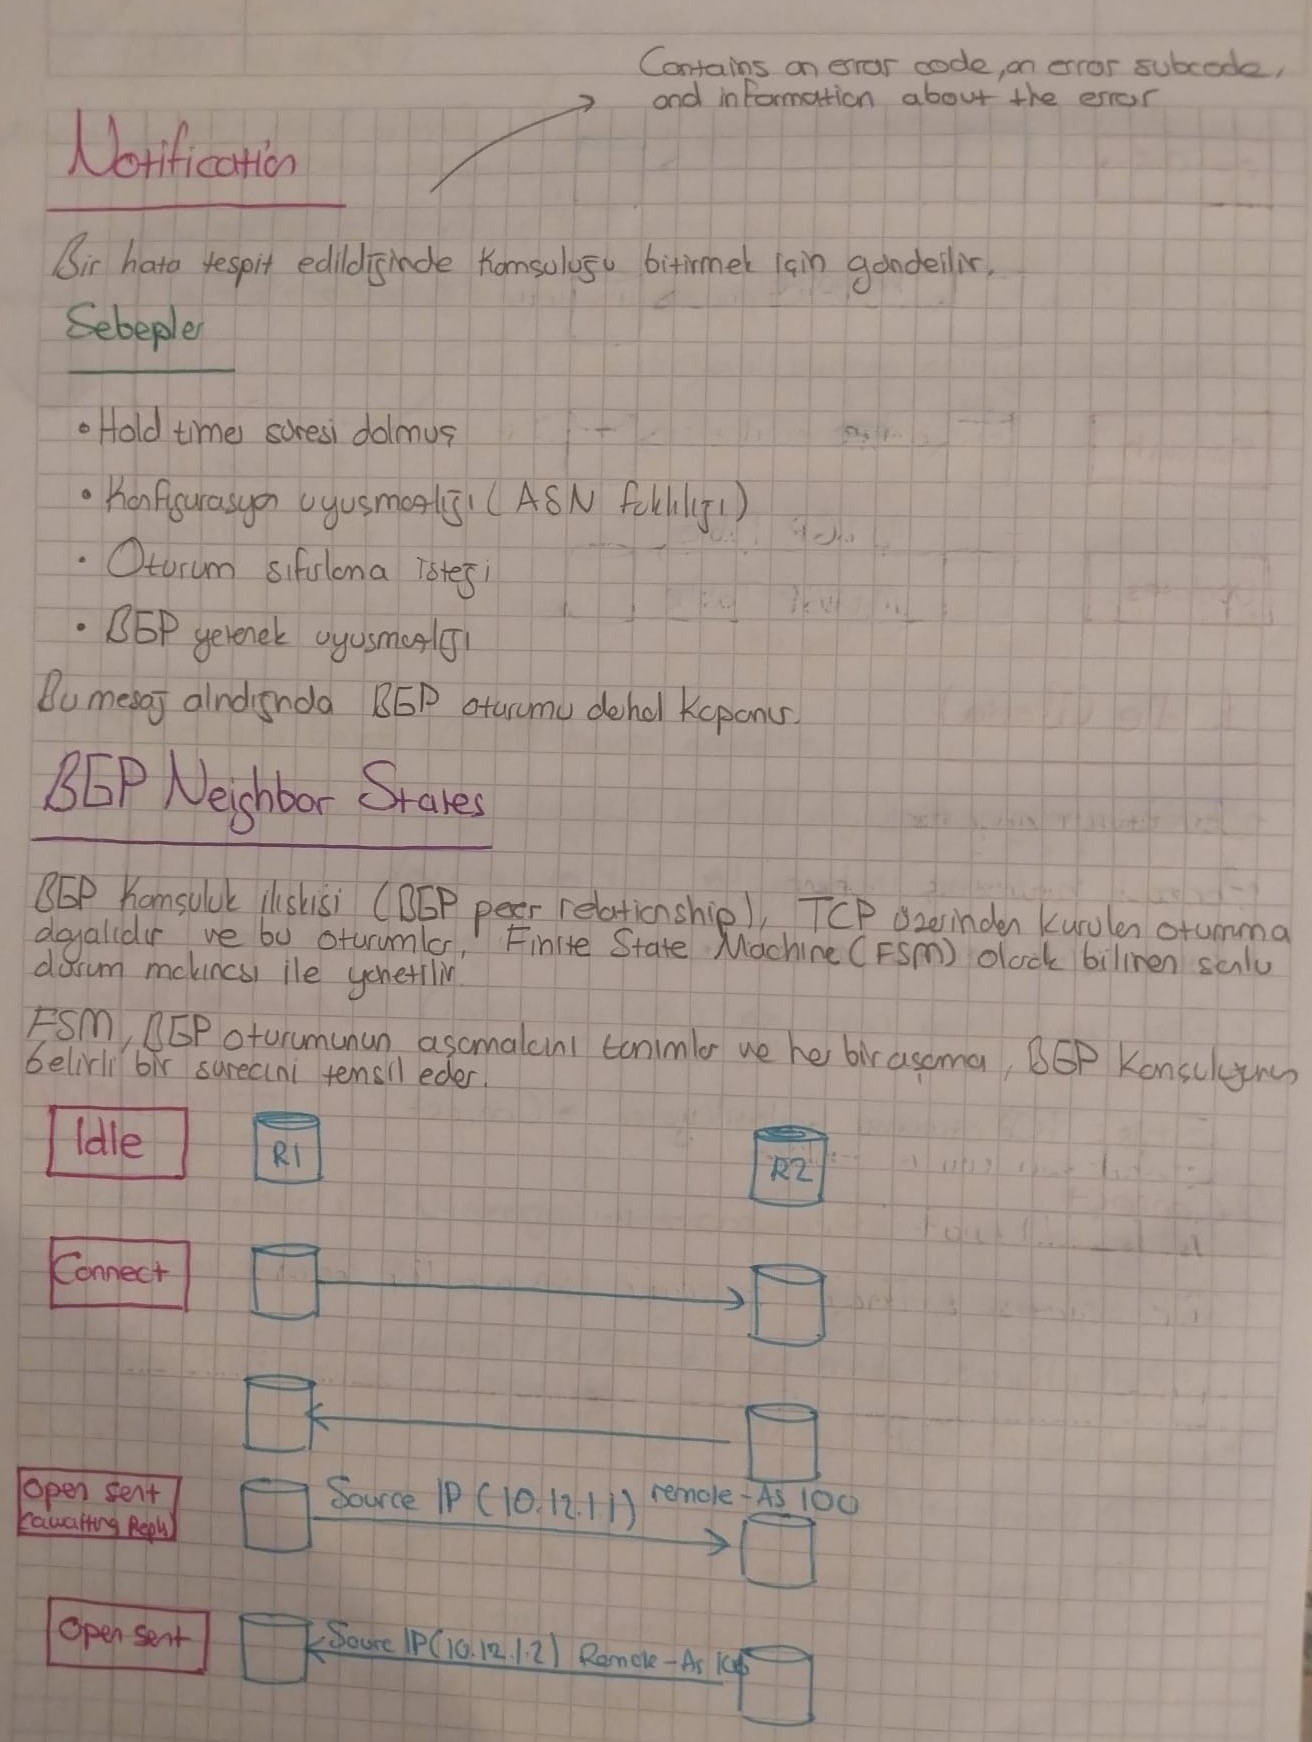 Contains an error code, an error subcode,
and information about the error
Notification
Bir hata tespit edildiğinde komşuluğu bitirmek için gönderilir.
Sebepler
• Hold timer süresi dolmuş
• Konfigurasyon uyuşmazlığı (ASN farklılığı)
• Oturum sıfırlama isteği
• BGP yetenek uyuşmazlığı
Bu mesaj alındığında BGP oturumu derhal kapanır.
BGP Neighbor States
BGP komşuluk ilişkisi (BGP peer relationship), TCP üzerinden kurulan oturuma
dayalıdır ve bu oturumlar, Finite State Machine (FSM) olarak bilinen sonlu
durum makinesi ile yönetilir.
FSM, BGP oturumunun aşamalarını tanımlar ve her bir aşama, BGP komşuluğunun
belirli bir sürecini temsil eder.
Idle R1 R2
Connect
Open sent Source IP (10.12.1.1) remote-As 100
(awaiting Reply)
Open sent Soure IP(10.12.1.2) Remote-As 100